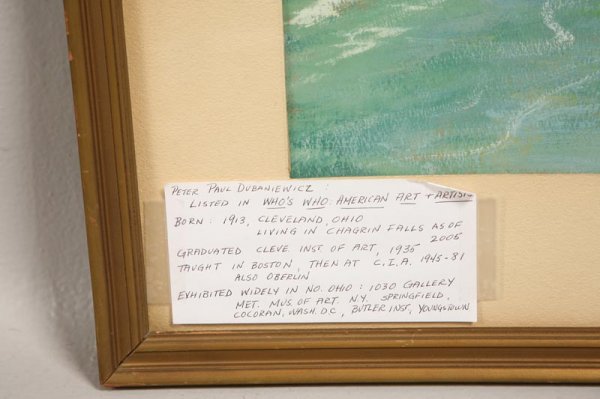 PETER PAUL DUBANIEWICZ :
LISTED IN WHO'S WHO: AMERICAN ART + ARTISTS
BORN: 1913, CLEVELAND, OHIO
LIVING IN CHAGRIN FALLS AS OF
2005
GRADUATED CLEVE INST OF ART, 1935
TAUGHT IN BOSTON, THEN AT C.I.A. 1945-81
ALSO OBERLIN
EXHIBITED WIDELY IN NO. OHIO: 1030 GALLERY
MET. MUS. OF ART. N.Y. SPRINGFIELD,
COCORAN, WASH. D.C, BUTLER INST, YOUNGSTOWN